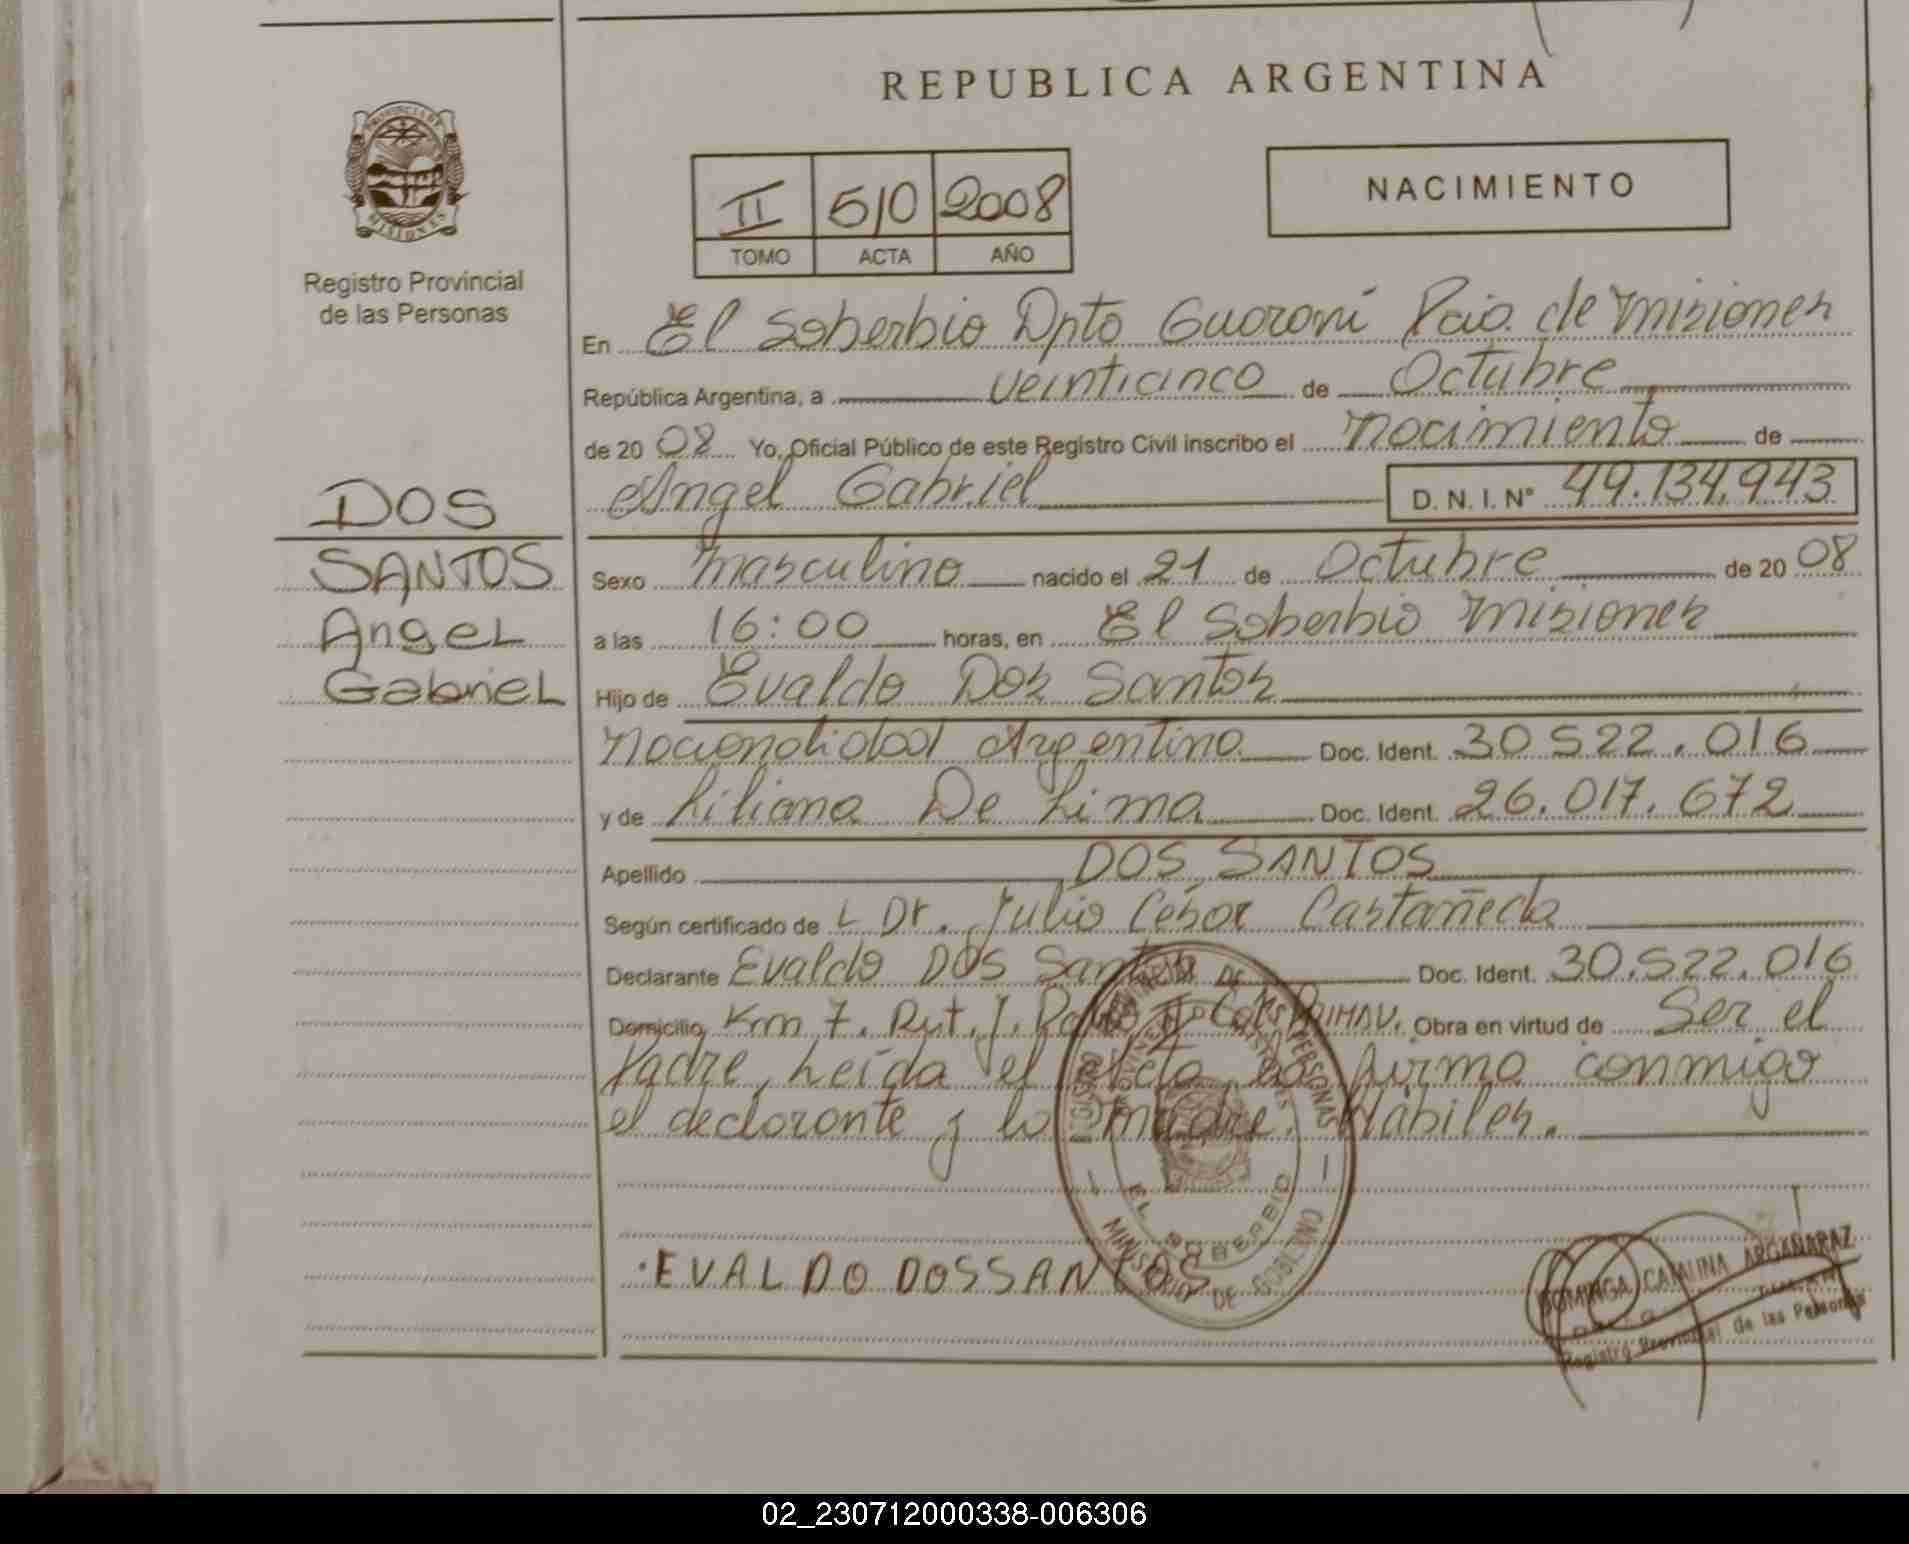 REPUBLICA ARGENTINA
PROVINCIA DE
MISIONES
Registro Provincial
de las Personas
II 510 2008
TOMO ACTA AÑO
NACIMIENTO
En El Soberbio Dpto Guaraní Pcia. de Misiones
República Argentina, a veinticinco de Octubre
de 2008 Yo, Oficial Público de este Registro Civil inscribo el nacimiento de
Angel Gabriel D. N. I. N° 49.134.943
DOS
SANTOS
Angel
Gabriel
Sexo masculino nacido el 21 de Octubre de 2008
a las 16:00 horas, en El Soberbio Misiones
Hijo de Evaldo Dos Santos
Nacionalidad Argentina Doc. Ident. 30.522.016
y de Liliana De Lima Doc. Ident. 26.017.672
Apellido DOS SANTOS
Según certificado de L Dr. Julio Cesar Castañeda
Declarante Evaldo Dos Santos Doc. Ident. 30.522.016
Domicilio Km 7. Rut. J. Obra en virtud de Ser el
Padre, Leída el Acta, la firma conmigo
el declarante y la madre. Hábiles.
PROVINCIA DE MISIONES
EL SOBERBIO
MINISTERIO DE GOBIERNO
EVALDO DOSSANTOS
DOMINGA CATALINA ARGAÑARAZ
Registro Provincial de las Personas
02_230712000338-006306